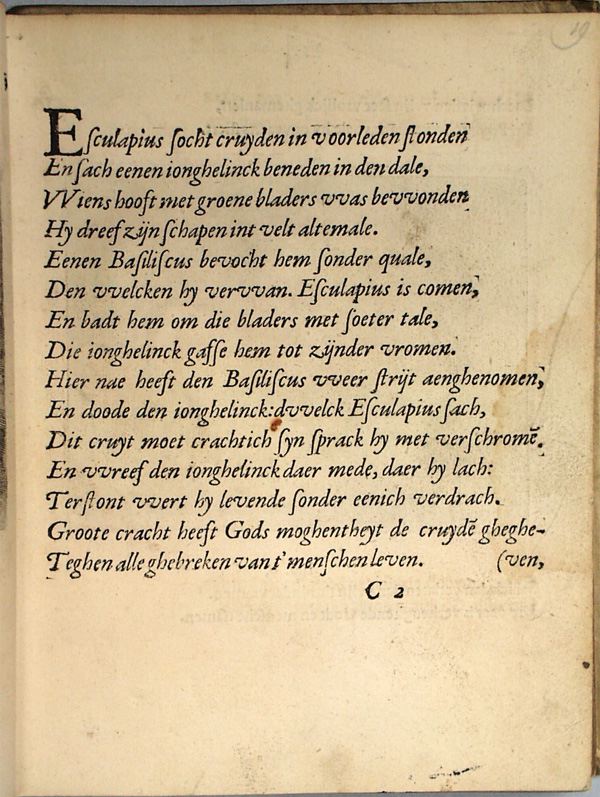 19
Esculapius socht cruyden in voorleden stonden
En sach eenen ionghelinck beneden in den dale,
VViens hooft met groene bladers vvas bevvonden
Hy dreef zijn schapen int velt altemale.
Eenen Basiliscus bevocht hem sonder quale,
Den vvelcken hy vervvan. Esculapius is comen,
En badt hem om die bladers met soeter tale,
Die ionghelinck gafse hem tot zijnder vromen.
Hier nae heeft den Basiliscus vveer strijt aenghenomen,
En doode den ionghelinck: dvvelck Esculapius sach,
Dit cruyt moet crachtich syn sprack hy met verschromē.
En vvreef den ionghelinck daer mede, daer hy lach:
Terstont vvert hy levende sonder eenich verdrach.
Groote cracht heeft Gods moghentheyt de cruydē gheghe-
Teghen alle ghebreken van t'menschen leven. (ven,
C 2